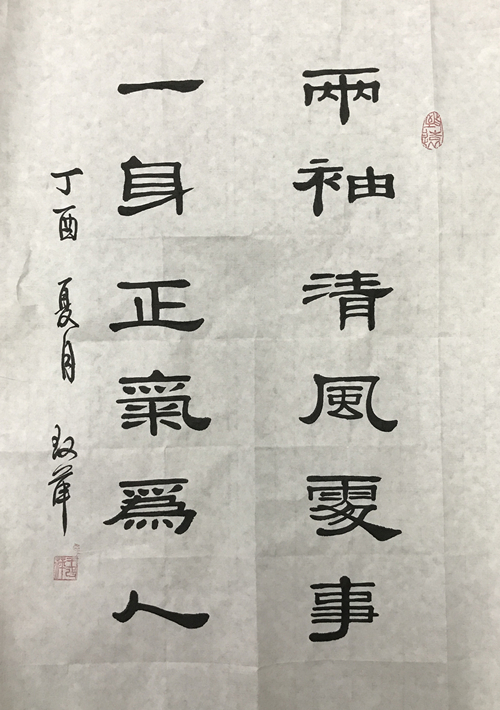 兩袖清風處事
一身正氣爲人
丁酉 夏月